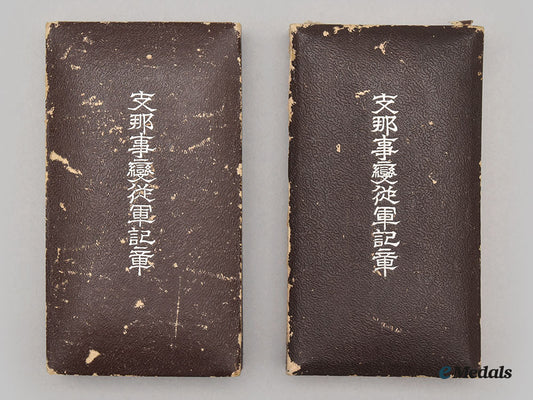 支那事變從軍記章
支那事變從軍記章
eMedals